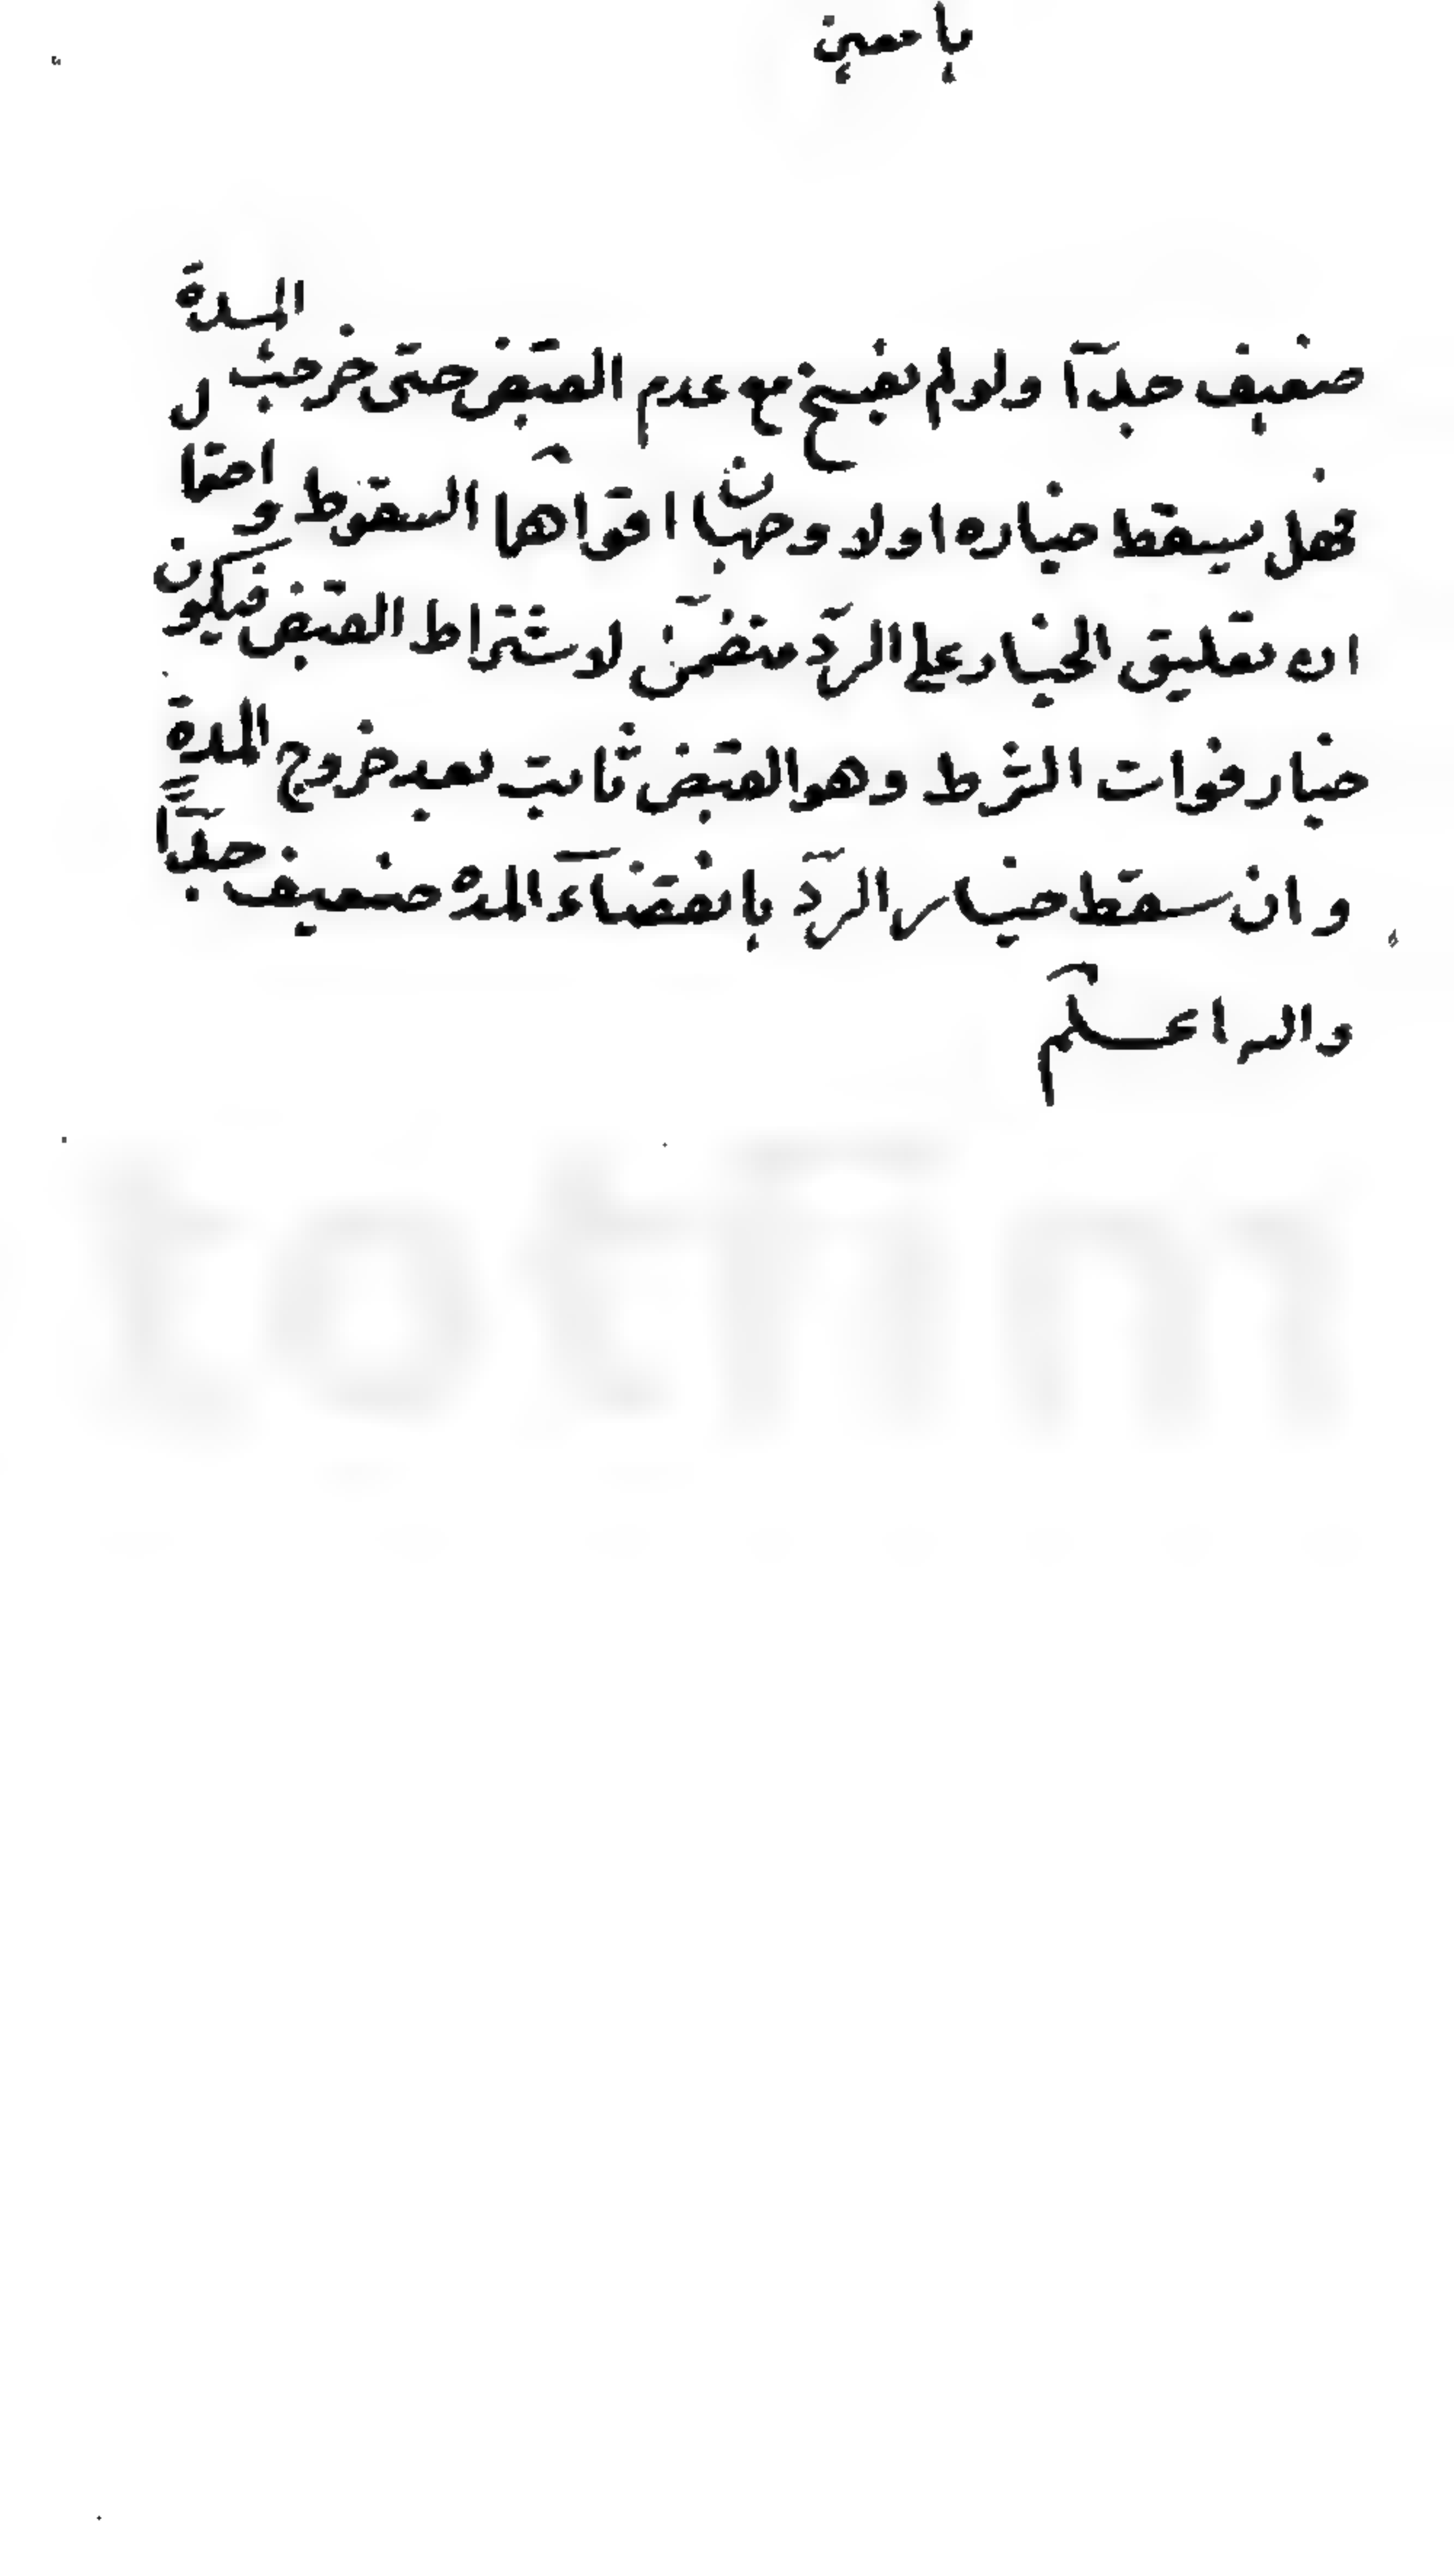 يا معين
ضعيف جدّاً ولو لم يفسخ مع عدم القبض حتى خرجت المدة
فهل يسقط خياره اولا وجهان اقواهما السقوط واحتمال
ان تعليق الخيار على الردّ متضمّن لاشتراط القبض فيكون
خيار فوات الشرط وهو القبض ثابت بعد خروج المدة
وان سقط خيار الردّ بانقضآء المدة ضعيف جدّاً
والله اعلم